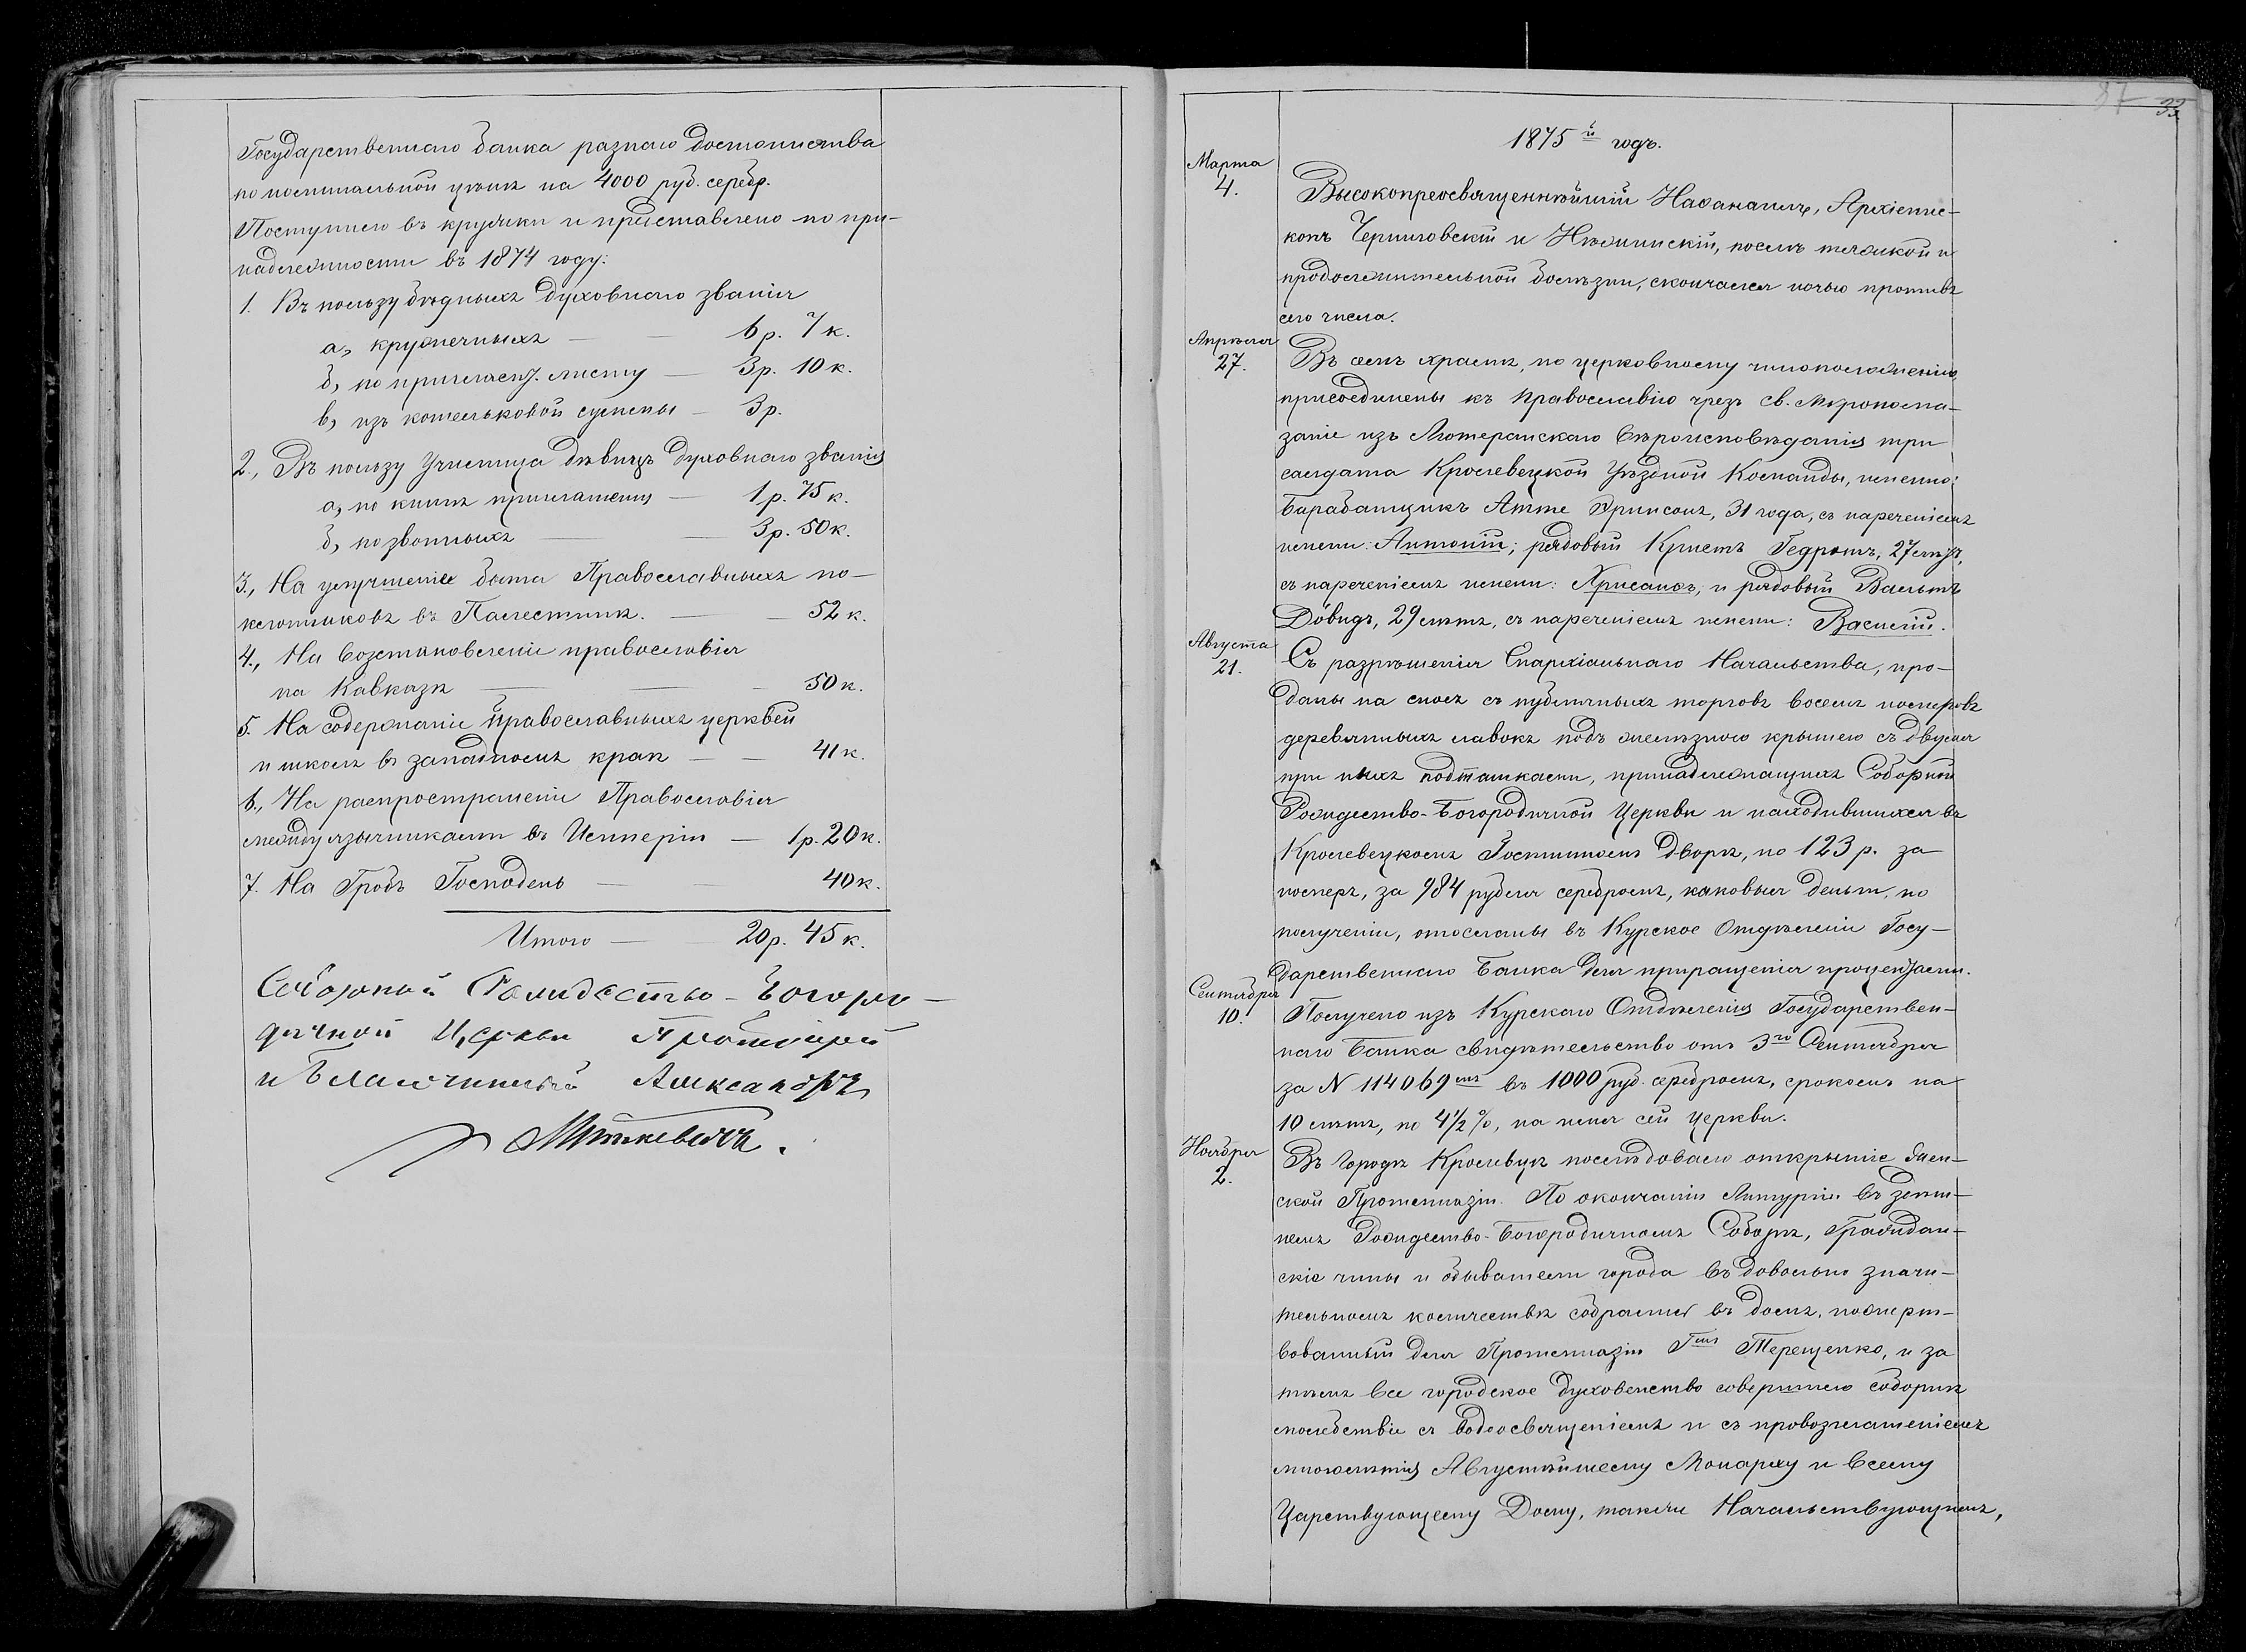 Государственнаго банка разнаго достоинства
по номинальной цѣнѣ на 4000 руб. серебр.
Поступило въ кружки и представлено по при-
надлежности въ 1874 году:
1. Въ пользу бѣдныхъ духовнаго званія
а, кружечныхъ — 6 р. 7 к.
б, по приглаш. листу — 3 р. 10 к.
в, изъ кошельковой суммы — 3 р.
2., Въ пользу Училища дѣвицъ духовнаго званія
а, по книгѣ приглашенія — 1 р. 75 к.
б, позвонныхъ — 3 р. 50 к.
3., На улучшеніе быта Православныхъ по-
клонниковъ въ Палестинѣ. — 52 к.
4., На возстановленіе православія
на Кавказѣ — 50 к.
5. На содержаніе православныхъ церквей
и школъ въ западномъ краѣ — 41 к.
6., На распространеніе Православія
между язычниками въ Имперіи — 1 р. 20 к.
7. На Гробъ Господень — 40 к.
Итого — 20 р. 45 к.
Соборной Рождество-Богоро-
дичной Церкви Протоіерей
и Благочинный Александръ
Миткевичъ.
33
1875й годъ.
Марта
4.
Высокопреосвященнѣйшій Наѳанаилъ, Архіепис-
копъ Черниговскій и Нѣжинскій, послѣ тяжкой и
продолжительной болѣзни, скончался ночью противъ
сего числа.
Апрѣля
27.
Въ семъ храмѣ, по церковному чиноположенію,
присоединены къ Православію чрезъ св. Мѵропома-
заніе изъ Лютеранскаго вѣроисповѣданія три
салдата Кролевецкой Уѣздной Команды, именно:
Барабанщикъ Атте Эринсонъ, 31 года, съ нареченіемъ
имени: Антоній; рядовый Кристъ Гедротъ, 27 лѣтъ,
съ нареченіемъ имени: Хрисанѳъ, и рядовый Вальтъ
Довидъ, 29 лѣтъ, съ нареченіемъ имени: Василій.
Августа
21.
Съ разрѣшенія Епархіальнаго Начальства, про-
даны на сносъ съ публичныхъ торговъ восемь номеровъ
деревянныхъ лавокъ подъ желѣзною крышею съ двумя
при ныхъ подташками, принадлежащихъ Соборной
Рождество-Богородичной Церкви и находившихся въ
Кролевецкомъ Гостинномъ Дворѣ, по 123 р. за
номеръ, за 984 рубля серебромъ, каковыя деньги, по
полученіи, отосланы въ Курское Отдѣленіе Госу-
дарственнаго Банка для приращенія процентами.
Сентября
10.
Получено изъ Курскаго Отдѣленія Государствен-
наго Банка свидѣтельство отъ 3го Сентября
за N 114069мъ въ 1000 руб. серебромъ, срокомъ на
10 лѣтъ, по 4 1/2 %, на имя сей церкви.
Ноября
2.
Въ Городѣ Кролевцѣ послѣдовало открытіе Жен-
ской Прогимназіи. По окончаніи Литургіи въ здѣш-
немъ Рождество-Богородичномъ Соборѣ, Граждан-
скіе чины и обыватели города въ довольно значи-
тельномъ количествѣ собрались въ домъ, пожерт-
вованный для Прогимназіи Гмъ Терещенко, и за
тѣмъ все городское духовенство совершило соборнѣ
молебствіе съ водоосвященіемъ и съ провозглашеніемъ
многолѣтія Августѣйшему Монарху и всему
Царствующему Дому, также Начальствующимъ,